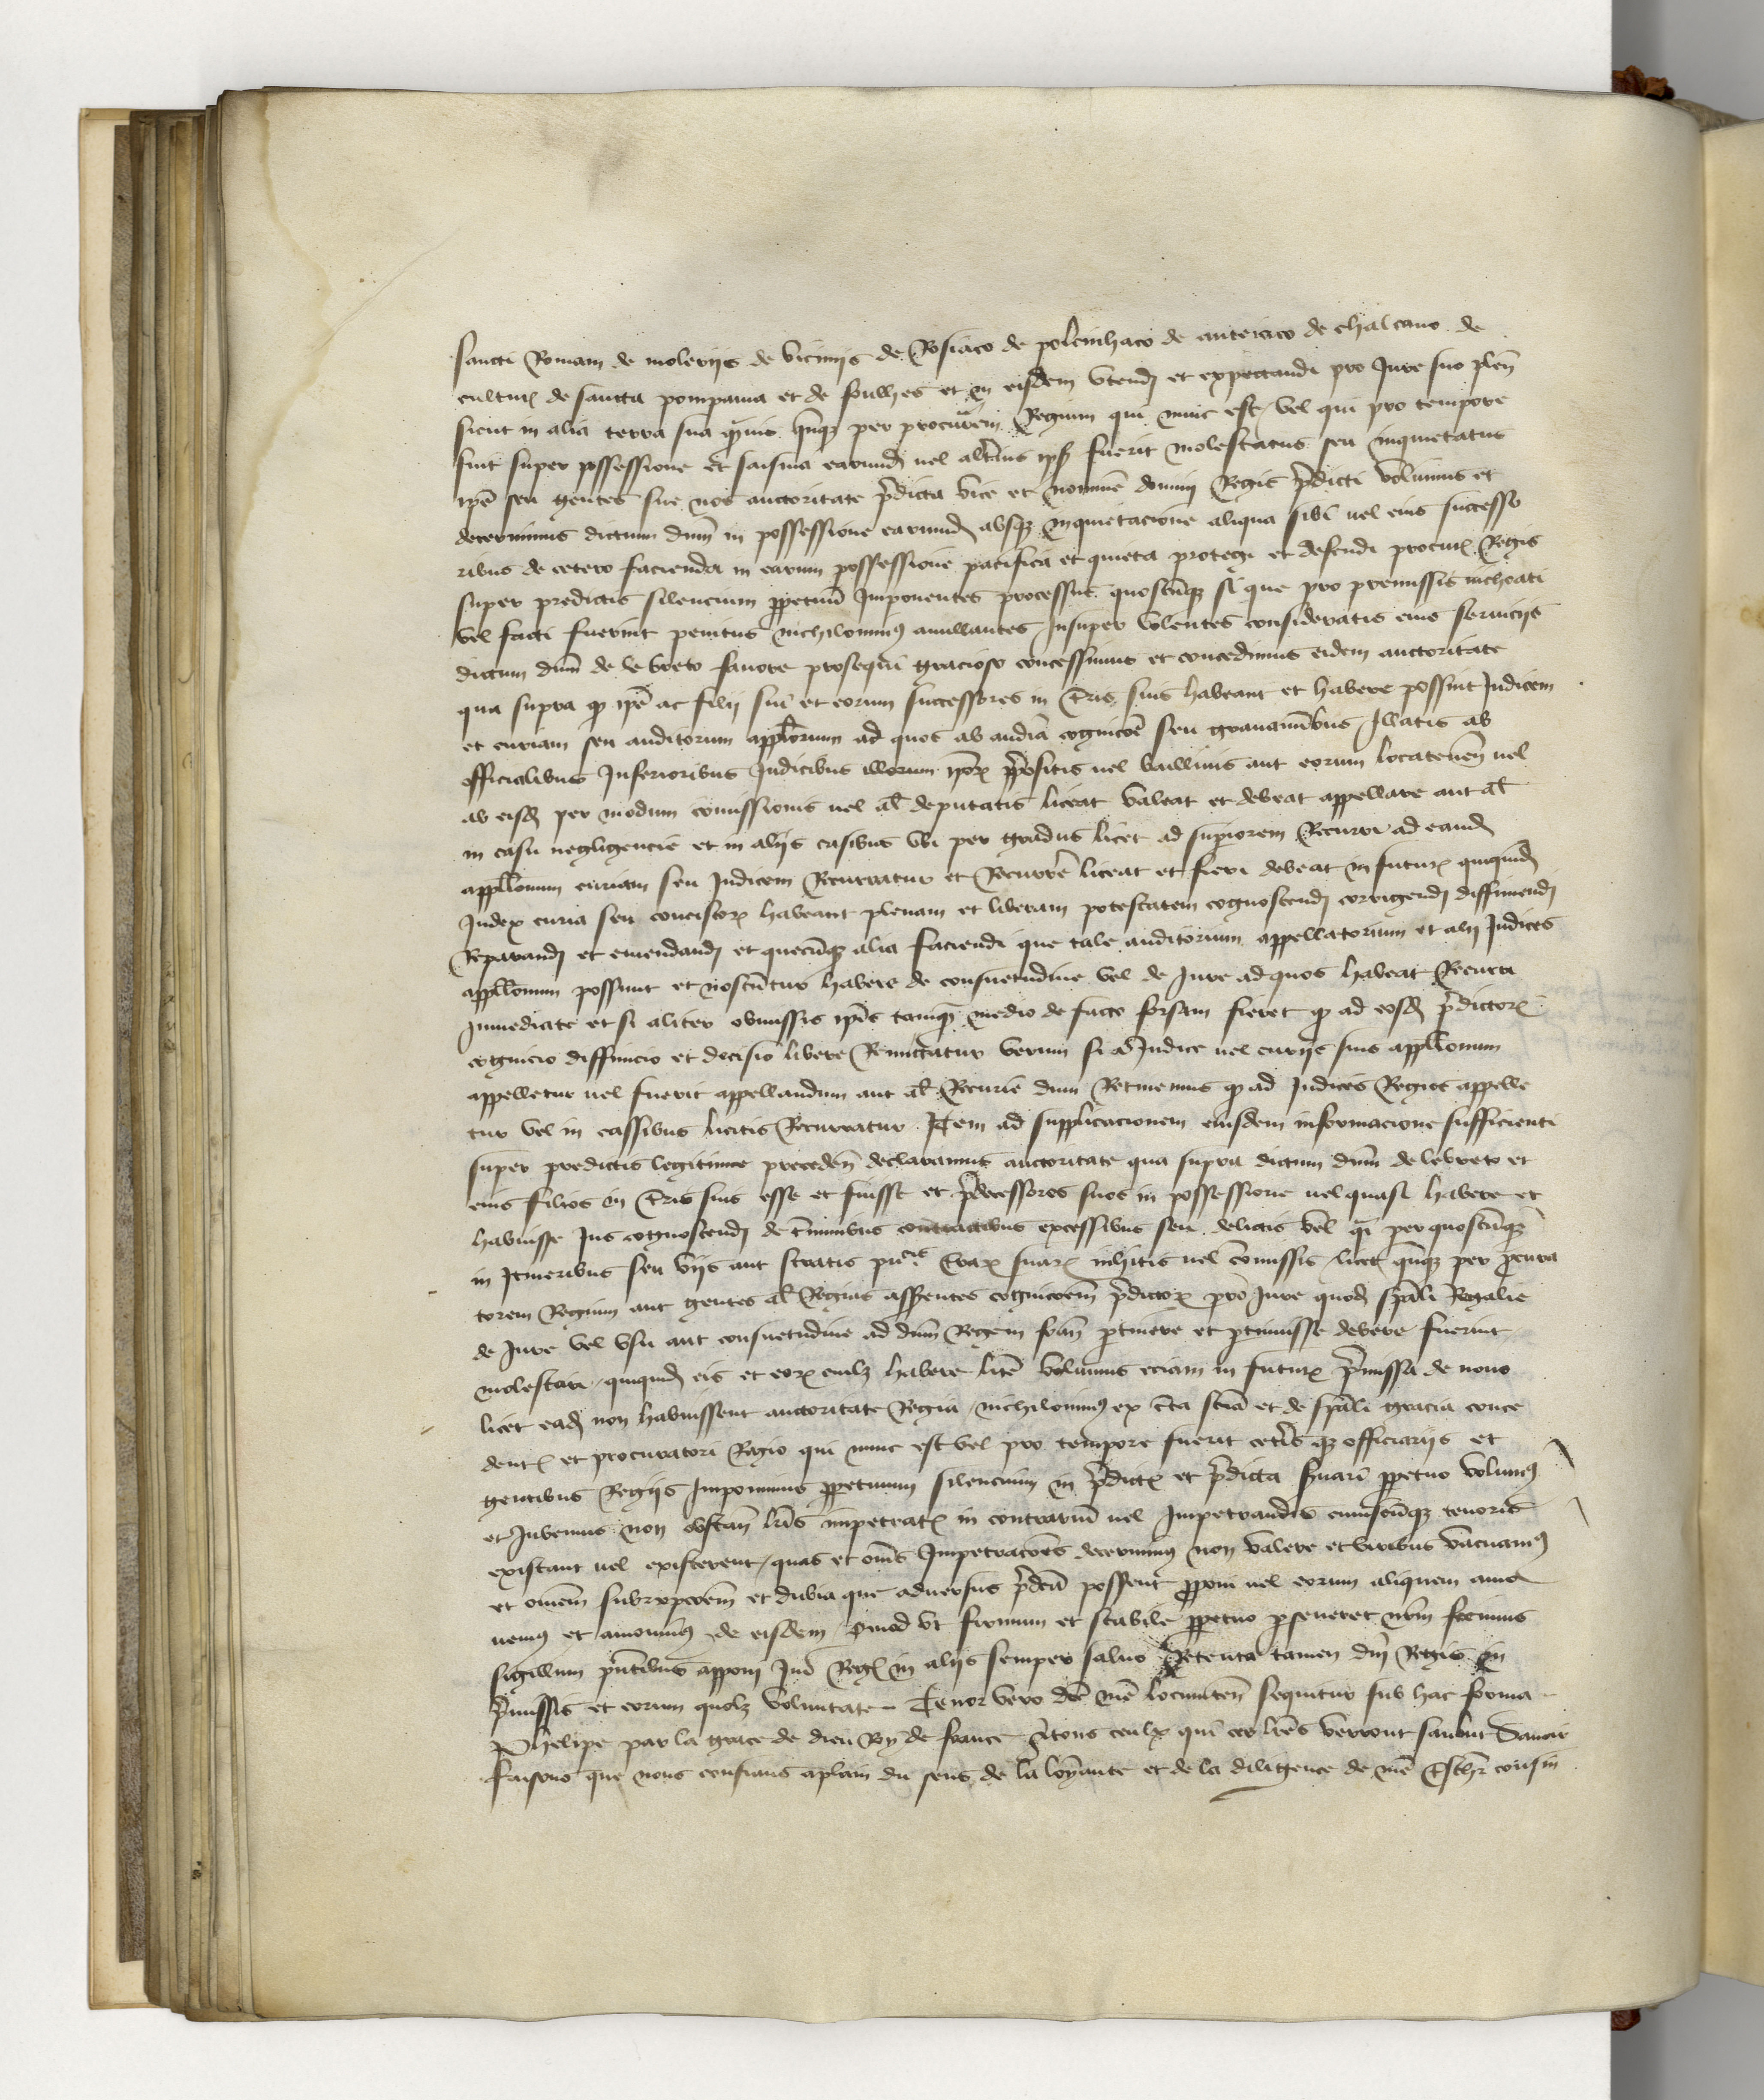 sancti Romani de moleriis de vicinijs de Rosiaco de polenihaco de auteriaco de chalcano de
culturis de sancta pompania et de foulhes et in eisdem vtendi et expectandi pro Jure suo plen
sicut in alia terra sua qamuis hucusque per procuratorem Regium qui nunc est / vel qui pro tempore
fuit super possessione et saisina earumdem uel alterius ipsis fuerit molestatus seu inquietatus
ipse seu gentes sue nos auctoritate predicta vice et nomine domini Regis predicti volumus et
decernimus dictum dominum in possessione earumdem absque inquietacione aliqua sibi uel eius successo
ribus de cetero facienda in earum possessione pacifica et quieta protegi et defendi procuratori Regis
super predictis silencium perpetuum Imponentes processus quoscumque si que pro premissis incheati
vel facti fuerint penitus nichilominus anullantes / Insuper volentes consideratis eius seruicijs
dictum dominum de lebreto fauore prosequi gracioso concessimus et concedimus eidem auctoritate
qua supra quod ipse ac filij sui et eorum successores in terris suis habeant et habere possint Judicem
et curiam seu auditorium appellationum ad quos ab audiencia cognicione seu grauaminibus / Illatis ab
officialibus Inferioribus Judicibus illorum ipsorum prepositis uel bailliuis aut eorum locatenentibus uel
ab eisdem per modum comissionis uel alias deputatis liceat valeat et debeat appellare aut alias
in casu negligencie et in alijs casibus vbi per gradus licet ad superiorem Recurri ad eandem
appellationum curiam seu Judicem Recurratur et Recurrere liceat et fieri debeat in futurum quiquidem
Judex curia seu concistorium habeant plenam et liberam potestatem cognoscendi corrigendi diffiniendi
Reparandi et emendandi et quecumque alia faciendi que tale auditorium appellatorium et alij Judices
appellationum possunt et noscuntur habere de consuetudine vel de Jure ad quos habeat Recurri
Inmediate et si aliter obmissis ipsis tamquam medio de facto forsam fieret quod ad eosdem predictorum
cognicio diffinicio et decisio libere Remittatur verum si a Judice uel curijs suis appellationum
appelletur uel fuerit appellandum aut alias Recurri dum Retinemus quod ad Judices Regios appelle
tur vel in cassibus licitis Recurratur . Item ad supplicacionem eiusdem informacione sufficienti
super predictis legitime precedente declaramus auctoritate qua supra dictum dominum de lebreto et
eius filios in terris suis esse et fuisse et predecessores suos in possessione uel quasi habere et
habuisse Jus cognoscendi de criminibus contractibus excessibus seu delictis vel quasi per quoscumque
in Itineribus seu vijs aut stratis publicis terrarum suarum inhitis uel comissis / licet hucusque per procura
torem Regium aut gentes alias Regias asserentes cognicionem predictorum pro Jure quodam speciali Regalie
de Jure vel vsu aut consuetudine ad dominum Regem francie pertinere et pertinuisse debere fuerint
molestati / quiquidem eis et eorum cuilibet habere licere volumus eciam in futurum premissa de nouo
licet eadem non habuissent auctoritate Regia / nichilominus ex certa sciencia et de speciali gracia conce
dentes et procuratori Regio qui nunc est vel pro tempore fuerit ceterisque officiarijs et
gentibus Regijs Imponimus perpetuum silencium in predictis et predicta seruari perpetuo volumus
et Jubemus non obstantibus literis impetratis in contrarium uel Impetrandis cuiuscumque tenoris
existant uel existerent / quas et omnes Impetraciones decernimus non valere et viribus vacuamus
et omnem subrepcionem et dubia que aduersus predicta possent proponi uel eorum aliquem amo
uemus et amouimus de eisdem / Quod vt firmum et stabile perpetuo perseueret nostrum fecimus
sigillum presentibus apponi Jure Regis in alijs semper saluo Retenta tamen domini Regis in
premissis et eorum quolibet voluntate - Tenor vero dicte nostre locumtenencie sequitur sub hac forma
Phelipe par la grace de dieu Roy de france A tous ceulx qui ces lettres verront salut Sauoir
faisons que nous confians aplain du sens de la loyaute et de la diligence de nostre treschier cousin